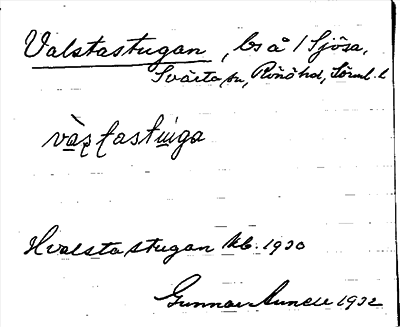 Valstastugan, ls å / Sjösa,
Svärta sn, Rönö hd, Sörml. l
vàstastuga
Hvalstastugan kb. 1930
Gunnar Linde 1932